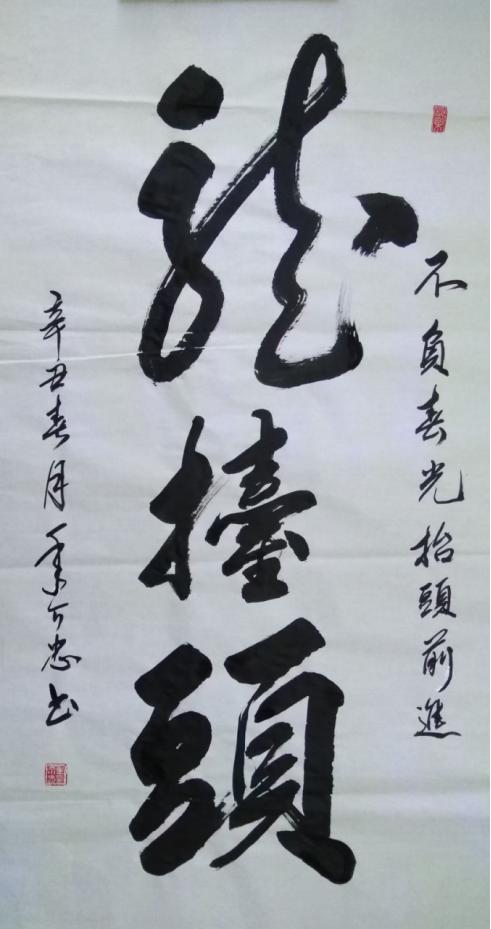 不負春光抬頭前進
龍擡頭
辛丑春月
忠书